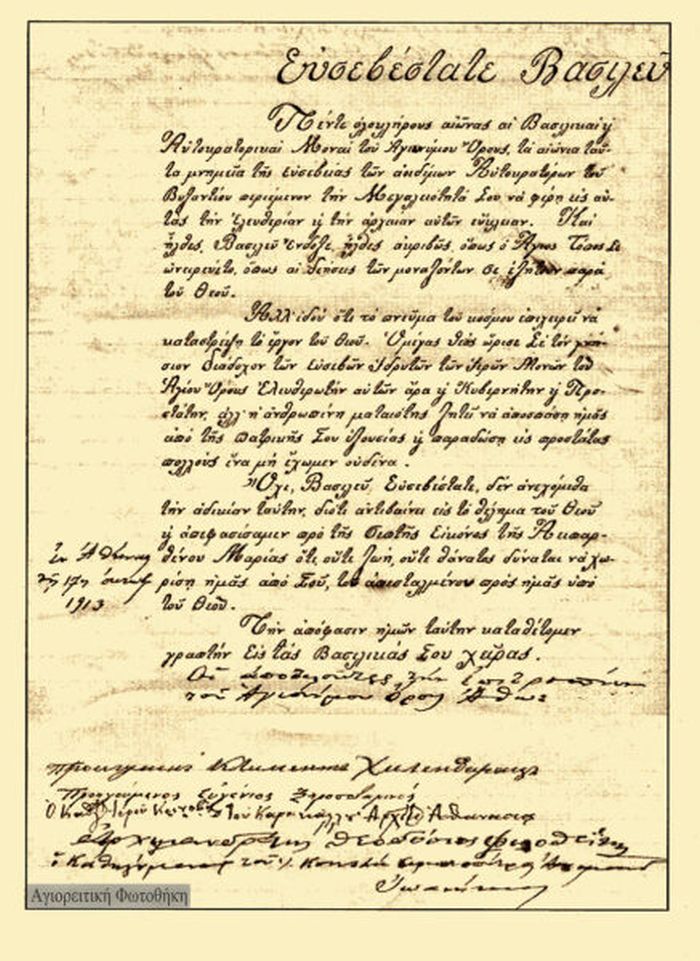 Εὐσεβέστατε Βασιλεῦ
Πέντε ὁλοκλήρους αἰῶνας αἱ Βασιλικαὶ ϗ
Αὐτοκρατορικαὶ Μοναὶ τοῦ Ἁγιωνύμου Ὄρους, τὰ αἰώνια ταῦ-
τα μνημεῖα τῆς εὐσεβείας τῶν ἀοιδίμων Αὐτοκρατόρων τοῦ
Βυζαντίου περιέμενον τὴν Μεγαλειότητά Σου νὰ φέρῃ εἰς αὐ-
τὰς τὴν ἐλευθερίαν ϗ τὴν ἀρχαίαν αὐτῶν εὔκλειαν. Καὶ
ἦλθες, Βασιλεῦ Ἔνδοξε, ἦλθες ἀκριβῶς, ὅπως ὁ Ἅγιος Τόπος Σὲ
ὠνειρεύετο, ὅπως αἱ δεήσεις τῶν μοναζόντων σὲ ἐζήτουν παρὰ
τοῦ Θεοῦ.
Ἀλλ' ἰδοὺ ὅτι τὸ πνεῦμα τοῦ κόσμου ἐπιχειρεῖ νὰ
καταστρέψῃ τὸ ἔργον τοῦ Θεοῦ. Ὁ μέγας Θεὸς ὥρισε Σὲ τὸν γνή-
σιον διάδοχον τῶν εὐσεβῶν ἱδρυτῶν τῶν Ἱερῶν Μονῶν τοῦ
Ἁγίου Ὄρους Ἐλευθερωτὴν αὐτῶν ἅμα ϗ Κυβερνήτην ϗ Προ-
στάτην, ἀλλ' ἡ ἀνθρωπίνη ματαιότης ζητεῖ νὰ ἀποσπάσῃ ἡμᾶς
ἀπὸ τῆς πατρικῆς Σου ἐξουσίας ϗ παραδώσῃ εἰς προστάτας
πολλοὺς ἵνα μὴ ἔχωμεν οὐδένα.
Ὄχι, Βασιλεῦ Εὐσεβέστατε, δὲν ἀνεχόμεθα
τὴν ἀδικίαν ταύτην, διότι ἀντιβαίνει εἰς τὸ θέλημα τοῦ Θεοῦ
ϗ ἀπεφασίσαμεν πρὸ τῆς Σεπτῆς Εἰκόνος τῆς Ἀειπαρ-
θένου Μαρίας ὅτι οὔτε ζωή, οὔτε θάνατος δύναται νὰ χω-
ρίσῃ ἡμᾶς ἀπὸ Σοῦ, τοῦ ἀπεσταλμένου πρὸς ἡμᾶς ὑπὸ
τοῦ Θεοῦ.
Ἐν Ἀθήναις
τῇ 17ῃ
1913
Τὴν ἀπόφασιν ἡμῶν ταύτην καταθέτομεν
γραπτὴν Εἰς τὰς Βασιλικάς Σου χεῖρας.
Οἱ ἀποτελοῦντες τὴν ἐπιτροπὴν
τοῦ Ἁγιωνύμου Ὄρους Ἄθω
Προηγούμενος Κλήμης
Προηγούμενος Εὐγένιος
Ἀθανάσιος
Ἀρχιμανδρίτης Θεοδόσιος
ὁ Καθηγούμενος τοῦ
Ἰωαννίκιος
Αγιορειτική Φωτοθήκη